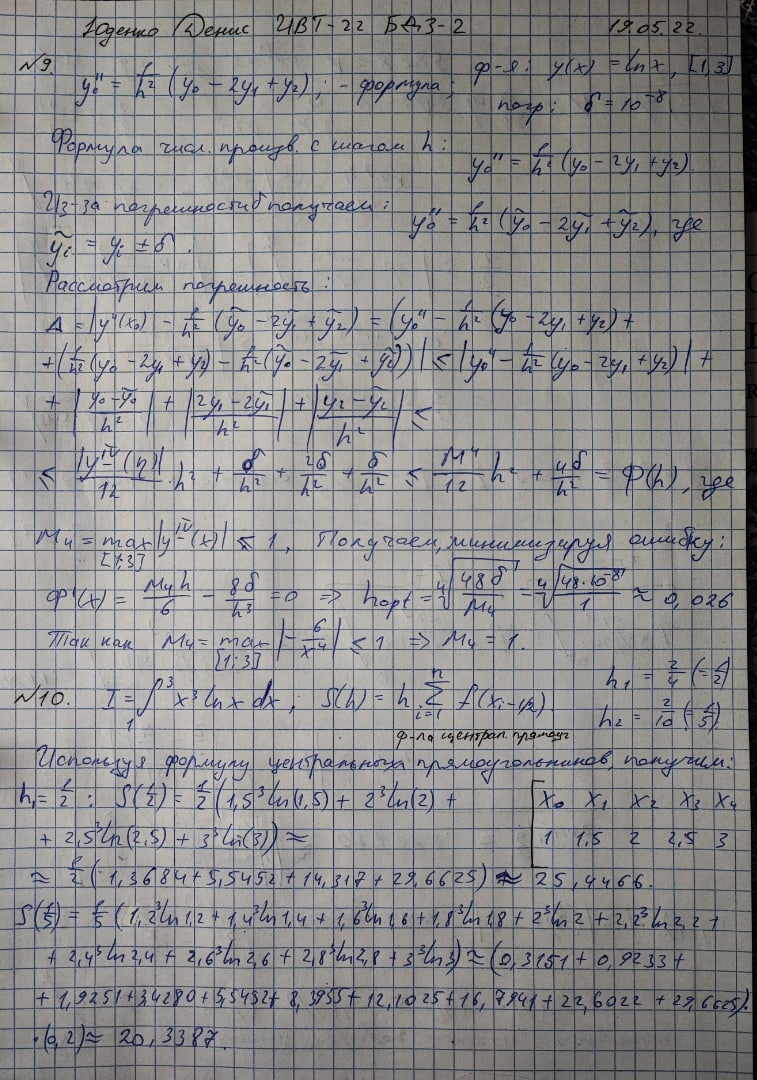 Юденко Денис ИВТ-22 БДЗ-2 19.05.22.
№9. y₀'' = 1/h² (y₀ - 2y₁ + y₂); - формула; ф-я: y(x) = ln x, [1,3]
погр: δ = 10⁻⁸
Формула числ. произв. с шагом h:
y₀'' = 1/h² (y₀ - 2y₁ + y₂).
Из-за погрешности δ получаем: y₀'' = 1/h² (ỹ₀ - 2ỹ₁ + ỹ₂), где
ỹᵢ = yᵢ ± δ.
Рассмотрим погрешность:
Δ = |y''(x₀) - 1/h² (ỹ₀ - 2ỹ₁ + ỹ₂) = (y₀'' - 1/h² (y₀ - 2y₁ + y₂) +
+ (1/h² (y₀ - 2y₁ + y₂) - 1/h² (ỹ₀ - 2ỹ₁ + ỹ₂))| ≤ |y₀'' - 1/h² (y₀ - 2y₁ + y₂)| +
+ |(y₀ - ỹ₀)/h²| + |(2y₁ - 2ỹ₁)/h²| + |(y₂ - ỹ₂)/h²| ≤
≤ |y^IV(η)|/12 · h² + δ/h² + 2δ/h² + δ/h² ≤ M⁴/12 h² + 4δ/h² = Φ(h), где
M₄ = max |y^IV(x)| ≤ 1. Получаем, минимизируя ошибку:
[1;3]
Φ'(x) = M₄h/6 - 8δ/h³ = 0 ⇒ hopt = ⁴√(48δ/M₄) = ⁴√(48·10⁻⁸/1) ≈ 0,026
Так как M₄ = max |-6/x⁴| ≤ 1 ⇒ M₄ = 1.
[1;3]
№10. I = ∫₁³ x³ ln x dx; S(h) = h Σᵢ₌₁ⁿ f(xᵢ₋₁/₂) h₁ = 2/4 (= 1/2)
h₂ = 2/10 (= 1/5)
ф-ла централ. прямоуг
Используя формулу центральных прямоугольников, получим:
h₁ = 1/2 : S(1/2) = 1/2 (1,5³ln(1,5) + 2³ln(2) + x₀ x₁ x₂ x₃ x₄
+ 2,5³ln(2,5) + 3³ln(3)) ≈ 1 1,5 2 2,5 3
≈ 1/2 (1,3684 + 5,5452 + 14,317 + 29,6625) ≈ 25,4466.
S(1/5) = 1/5 (1,2³ln1,2 + 1,4³ln1,4 + 1,6³ln1,6 + 1,8³ln1,8 + 2³ln2 + 2,2³ln2,2 +
+ 2,4³ln2,4 + 2,6³ln2,6 + 2,8³ln2,8 + 3³ln3) ≈ (0,3151 + 0,9233 +
+ 1,9251 + 3,4280 + 5,5452 + 8,3955 + 12,1025 + 16,7941 + 22,6022 + 29,6625)·
·(0,2) ≈ 20,3387.